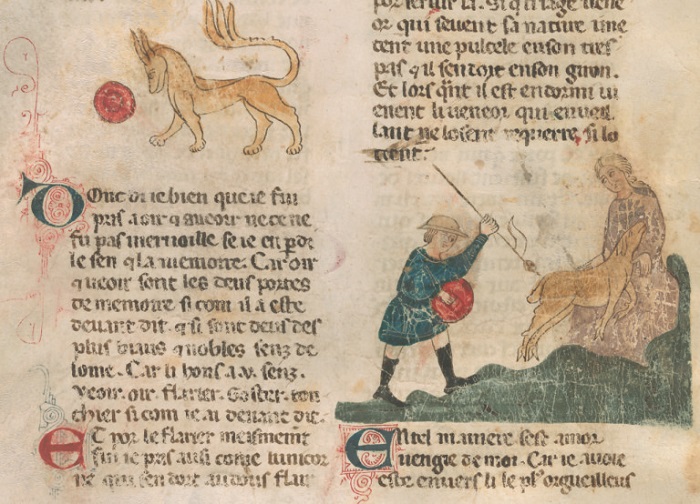 Donc di ie bien que ie fui
pris a oir ⁊ a ueoir ne ce ne
fu pas merueille se ie en pdi
le sen ⁊ la memoire. Car oir
⁊ ueoir sont les deus portes
de memoire si com il a este
deuant dit. ⁊ si sont deus des
plus biaus ⁊ nobles senz de
lome. Car li hons a .v. senz.
Veoir. oir. flairer. Goster. tou
chier si com ie ai deuant dit.
Et por le flairer meisment
fui ie pris ausi come lunicor
ne qui sendort au dous flair
por ferir la. Si qil
or qui seuent sa nature me
tent une pulcele en son tres
pas ⁊ il sendort en son giron.
Et lors qnt il est endormi ui
enent li ueneor qui en ueil
lant ne losent requerre, si lo
cient.
En tel maniere sest amor
uengie de moi. Car ie auoie
este enuers li le pl' orgueilleus